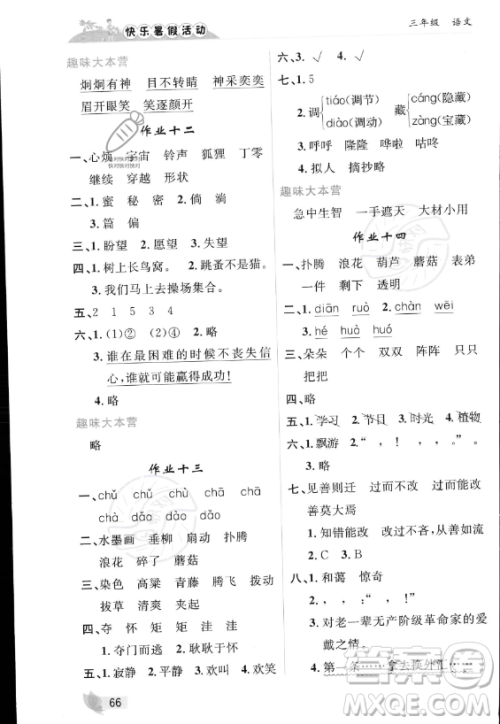 快乐暑假活动
三年级 语文
趣味大本营
炯炯有神 目不转睛 神采奕奕
眉开眼笑 笑逐颜开
作业十二
一、心烦 宇宙 铃声 狐狸 丁零
继续 穿越 形状
二、1. 蜜 秘 密 2. 倘 淌
3. 篇 偏
三、1. 盼望 2. 愿望 3. 失望
四、1. 树上长鸟窝。 2. 跳蚤不是猫。
3. 我们马上来操场集合。
五、2 1 5 3 4
六、1. (1)② (2)④ 2. 略
3. 谁在最困难的时候不丧失信
心,谁就可能赢得成功。
4. 略
趣味大本营
略
作业十三
一、chǔ chǔ chù chù
chà dāo dào dǎo
二、水墨画 垂柳 扇动 扑腾
浪花 碎了 蘑菇
三、染色 高粱 青藤 腾飞 拨拉
拔草 清泉 清澈
四、夺 怀 矩 矩 洼 洼
五、1. 奄奄 2. 耿耿于怀
六、1. 寂静 2. 平静 3. 欢叫 4. 欢笑
66
六、3. √ 4. √
七、1. 5
2. 调 tiáo(调节) diào(调动) 藏 cáng(隐藏) zàng(宝藏)
3. 呼呼 隆隆 哗啦 咕咚
4. 拟人 摘抄略
趣味大本营
急中生智 一手遮天 大材小用
作业十四
一、扑腾 浪花 葫芦 蘑菇 表弟
一件 剩下 透明
二、1. diān ruò 2. chàn wēi
3. hé huò
三、朵朵 个个 双双 阵阵 只只
把把
四、略
五、1. 学习 2. 节目 3. 时光 4. 植物
六、1. 飘游 2. “ , ! , ! ”
3. 略
七、见善则迁 过而不改 过而能改
善莫大焉
1. 知错能改 2. 从善如流
2. C 3. √
八、1. 和蔼 惊奇
2. , ! , ! ,
3. 对老一辈无产阶级革命家的爱
戴之情。
4. 第一条 拿去换外汇